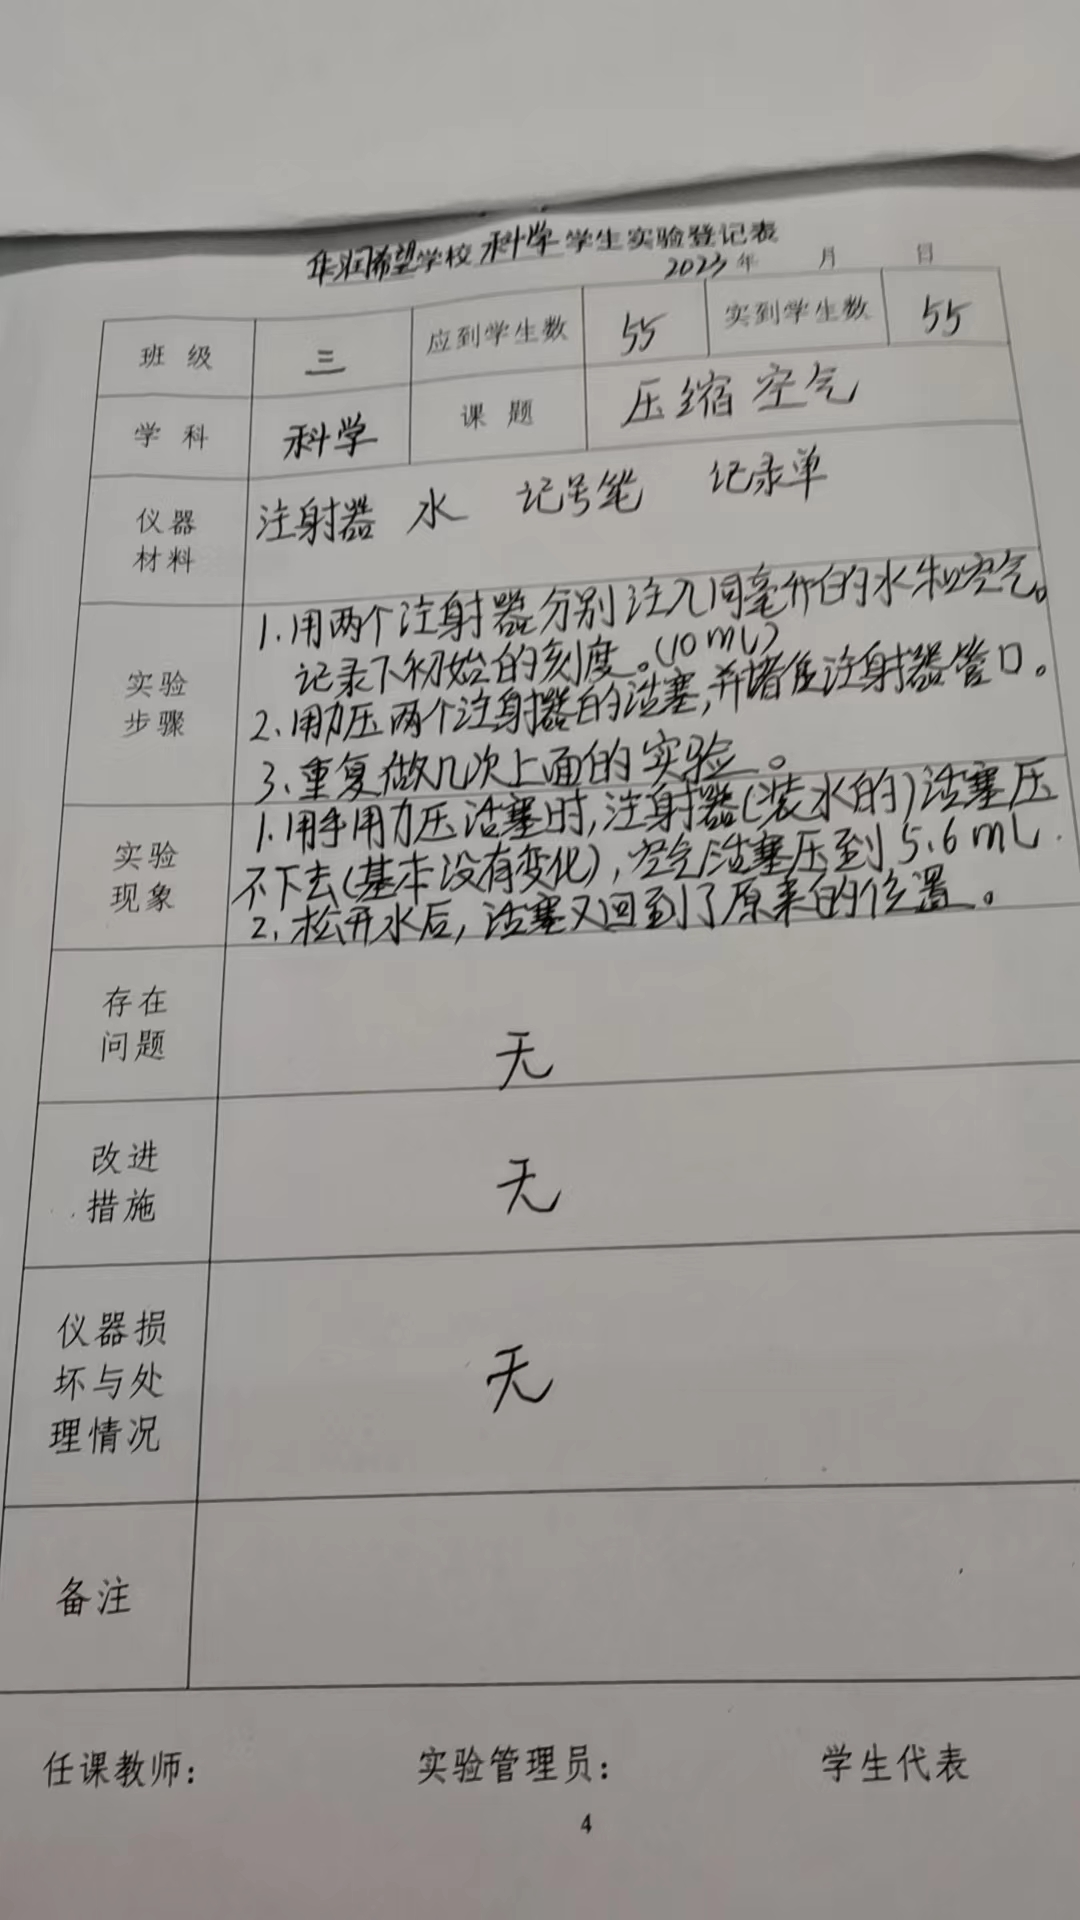 华润希望学校科学学生实验登记表
2023年 月 日
班级 三 应到学生数 55 实到学生数 55
学科 科学 课题 压缩空气
仪器材料 注射器 水 记号笔 记录单
实验步骤
1.用两个注射器分别注入同毫升的水和空气。
记录下初始的刻度。(10mL)
2.用力压两个注射器的活塞,并堵住注射器管口。
3.重复做几次上面的实验。
实验现象
1.用手用力压活塞时,注射器(装水的)活塞压
不下去(基本没有变化),空气活塞压到5.6mL.
2.松开水后,活塞又回到了原来的位置。
存在问题 无
改进措施 无
仪器损坏与处理情况 无
备注
任课教师: 实验管理员: 学生代表
4